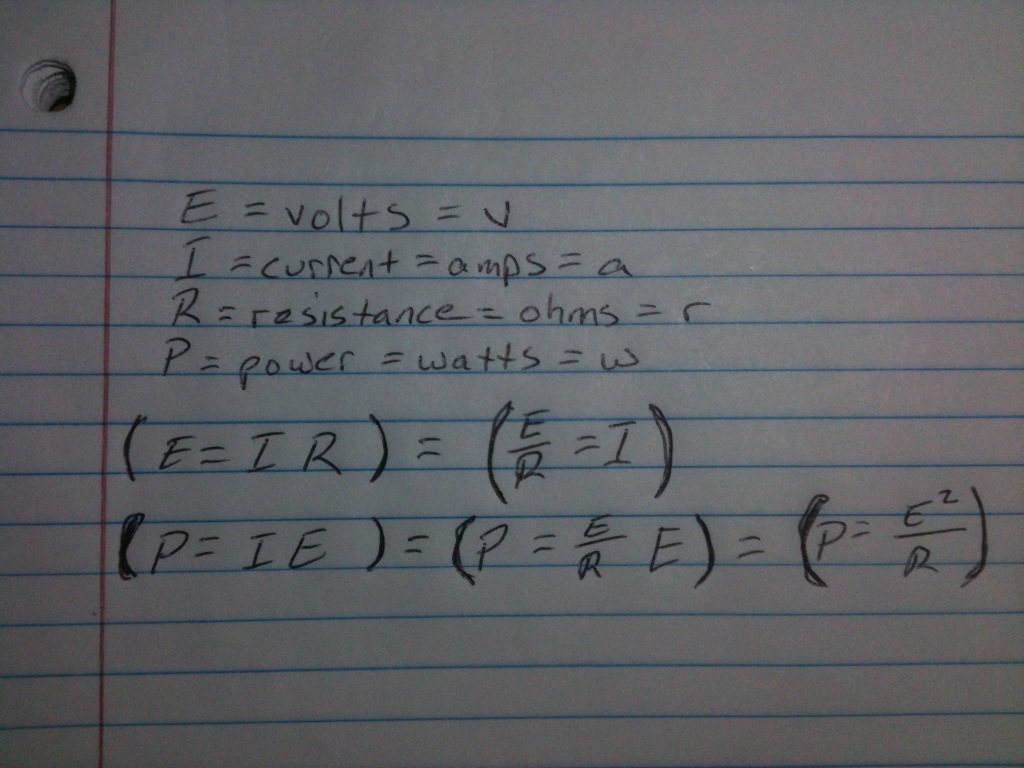 E = volts = v
I = current = amps = a
R = resistance = ohms = r
P = power = watts = w
(E = I R) = (E/R = I)
(P = I E) = (P = E/R E) = (P = E²/R)